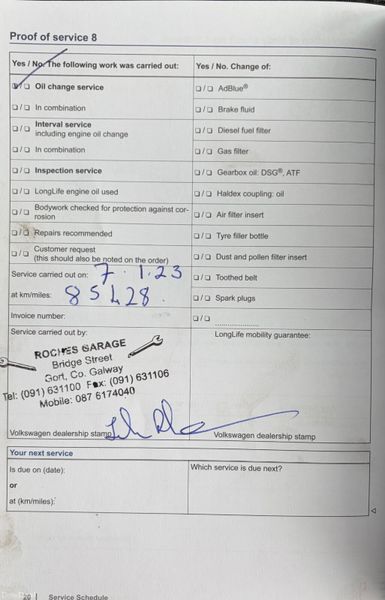 Proof of service 8
Yes / No. The following work was carried out:
☑/☐ Oil change service
☐/☐ In combination
☐/☐ Interval service
including engine oil change
☐/☐ In combination
☐/☐ Inspection service
☐/☐ LongLife engine oil used
☐/☐ Bodywork checked for protection against cor-
rosion
☐/☐ Repairs recommended
☐/☐ Customer request
(this should also be noted on the order)
Service carried out on: 7.1.23
at km/miles: 85428.
Invoice number:
Service carried out by:
ROCHES GARAGE
Bridge Street
Gort, Co. Galway
Tel: (091) 631100 Fax: (091) 631106
Mobile: 087 6174040
Volkswagen dealership stamp
Yes / No. Change of:
☐/☐ AdBlue®
☐/☐ Brake fluid
☐/☐ Diesel fuel filter
☐/☐ Gas filter
☐/☐ Gearbox oil: DSG®, ATF
☐/☐ Haldex coupling: oil
☐/☐ Air filter insert
☐/☐ Tyre filler bottle
☐/☐ Dust and pollen filter insert
☐/☐ Toothed belt
☐/☐ Spark plugs
☐/☐ ....................
LongLife mobility guarantee:
Volkswagen dealership stamp
Your next service
Is due on (date):
or
at (km/miles):
Which service is due next?
20 | Service Schedule